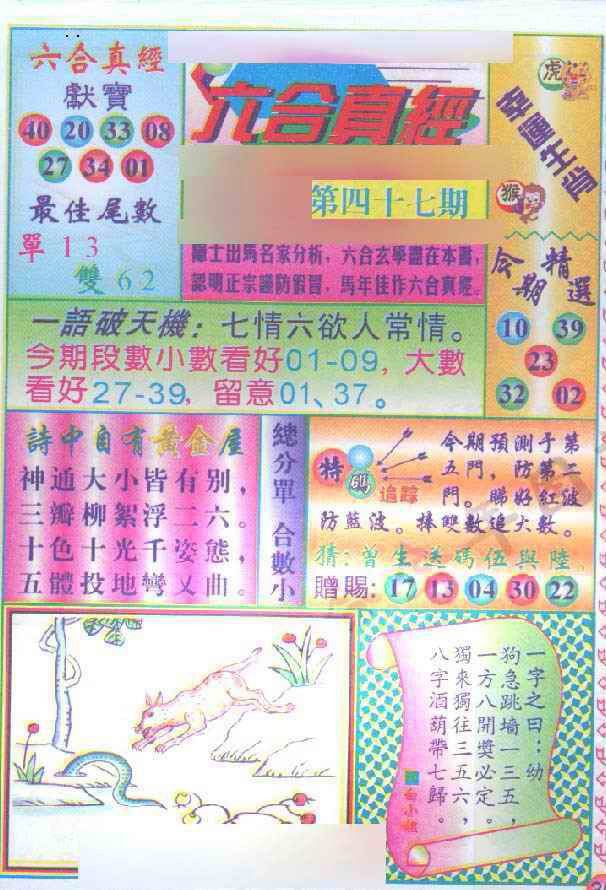 六合真經
獻寶
40 20 33 08
27 34 01
最佳尾數
單13
雙62
六合真經
第四十七期
隱士出馬名家分析，六合玄學盡在本書，
認明正宗謹防假冒，馬年佳作六合真經。
虎
幸運生肖
猴
今期精選
10 39
23
32 02
一語破天機：七情六欲人常情。
今期段數小數看好01-09，大數
看好27-39，留意01、37。
詩中自有黃金屋
神通大小皆有别，
三瓣柳絮浮二六。
十色十光千姿態，
五體投地彎又曲。
總分單 合數小
特碼追踪
今期預測于第
五門，防第二
門。睇好紅波
防藍波。捧雙數追大數。
猜：曾生送碼伍與陸
贈賜：17 13 04 30 22
一字之曰：幼
狗急跳墙一三五，
一方八開獎必定。
獨來獨往三五六，
八字酒葫帶七歸。
白小姐